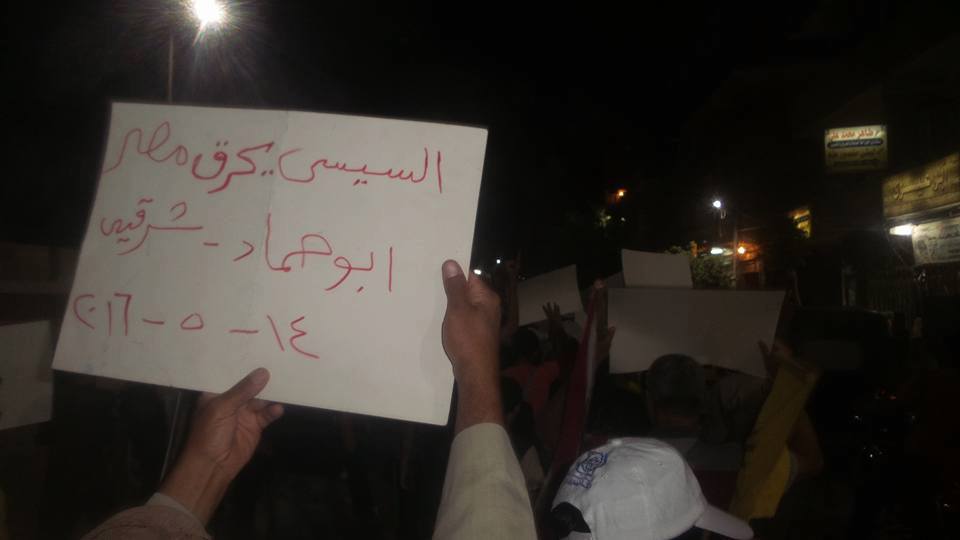 السيسى يحرق مصر
ابو حماد - شرقيه
١٤ - ٥ - ٢٠١٦